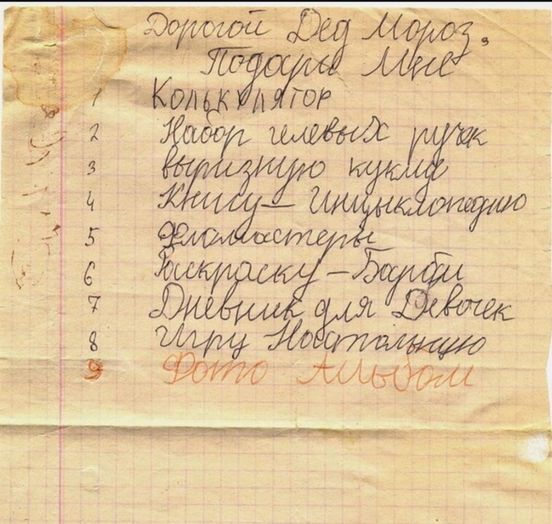 Дорогой Дед Мороз.
Подари Мне
1 Колькулятор
2 Набор гелевых ручек
3 выризную куклу
4 Книгу - Инцыклопедию
5 Фломастеры
6 Раскраску - Барби
7 Дневник для Девочек
8 Игру Настольную
9 Фото Альбом